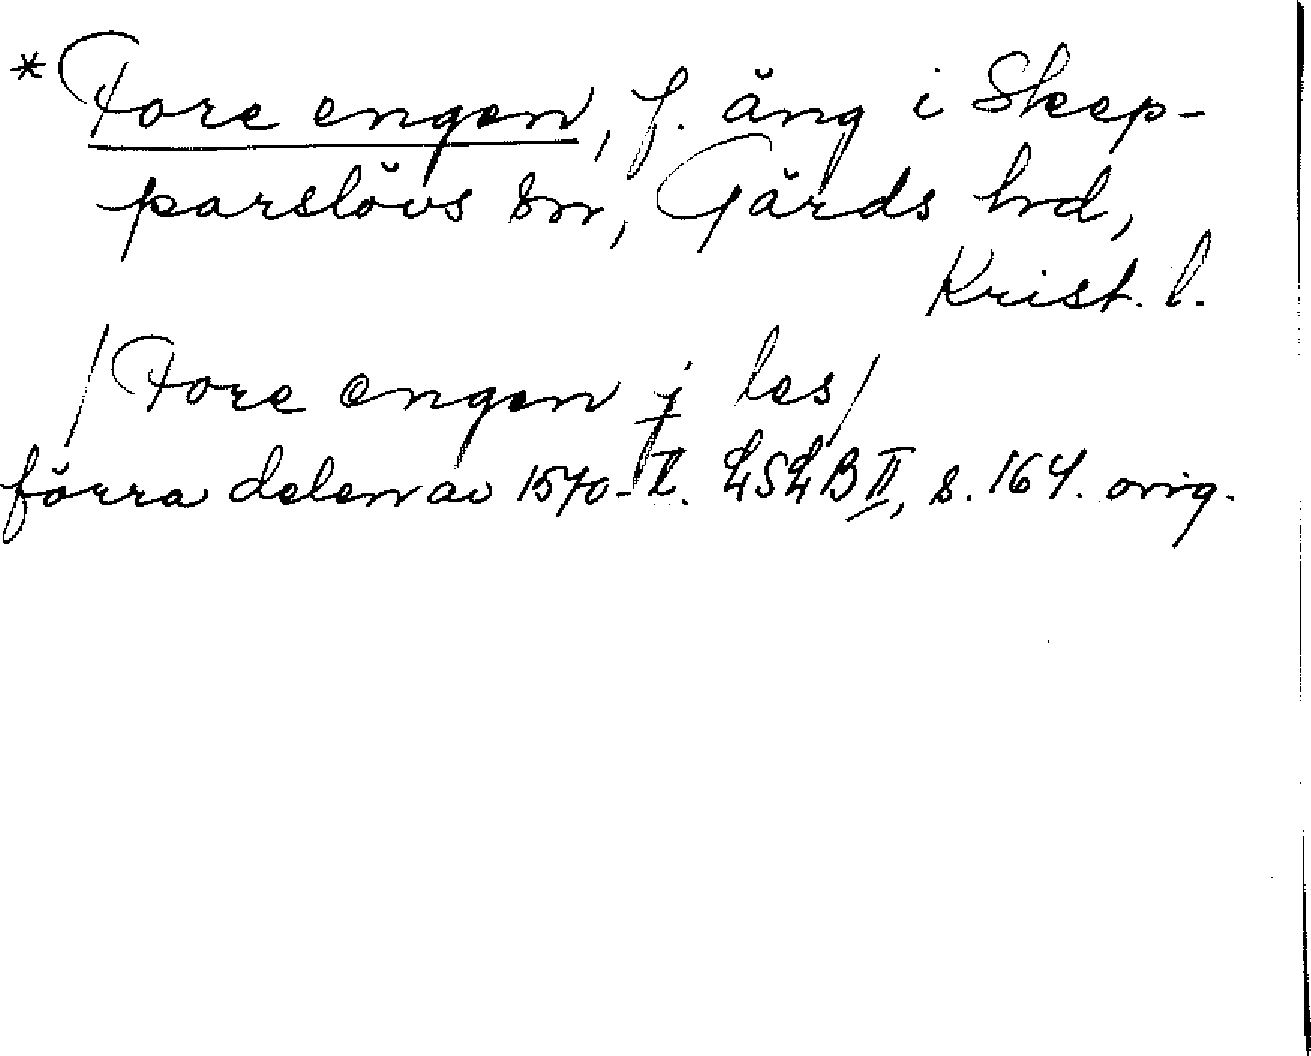 *Fore engen, f. äng i Skep-
parslövs sn, Gärds hd,
Krist. l.
/Fore engen j les/
förra delen av 1570-t. LSLB II, s. 164. orig.